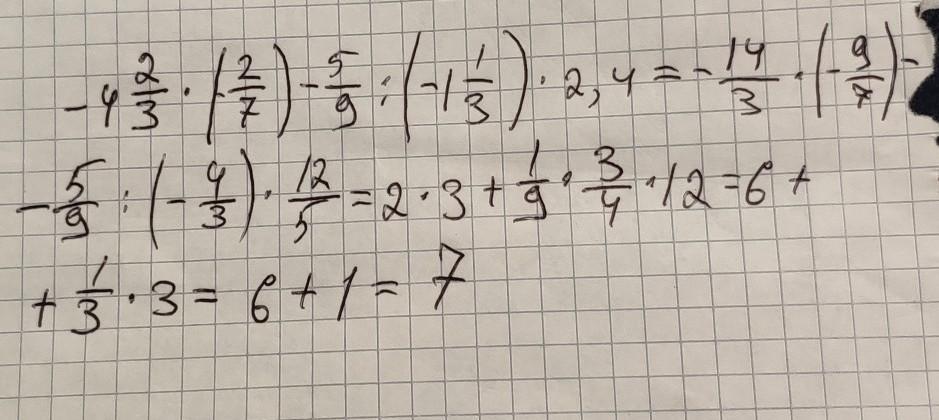 -4 2/3 · (-2/7) - 5/9 : (-1 1/3) · 2,4 = -14/3 · (-9/7) -
- 5/9 : (-4/3) · 12/5 = 2 · 3 + 1/9 · 3/4 · 12 = 6 +
+ 1/3 · 3 = 6 + 1 = 7